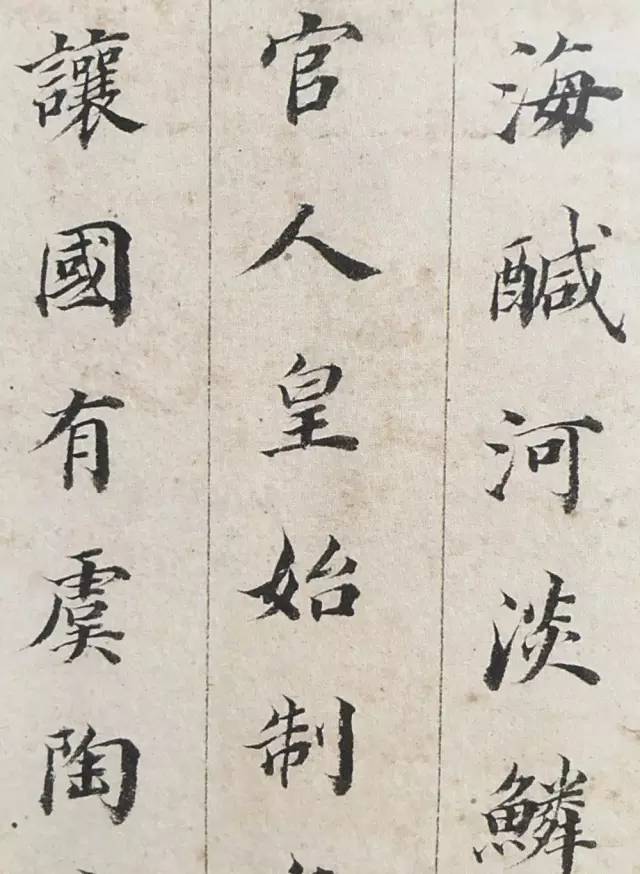 海醎河淡鱗
官人皇始制
讓國有虞陶